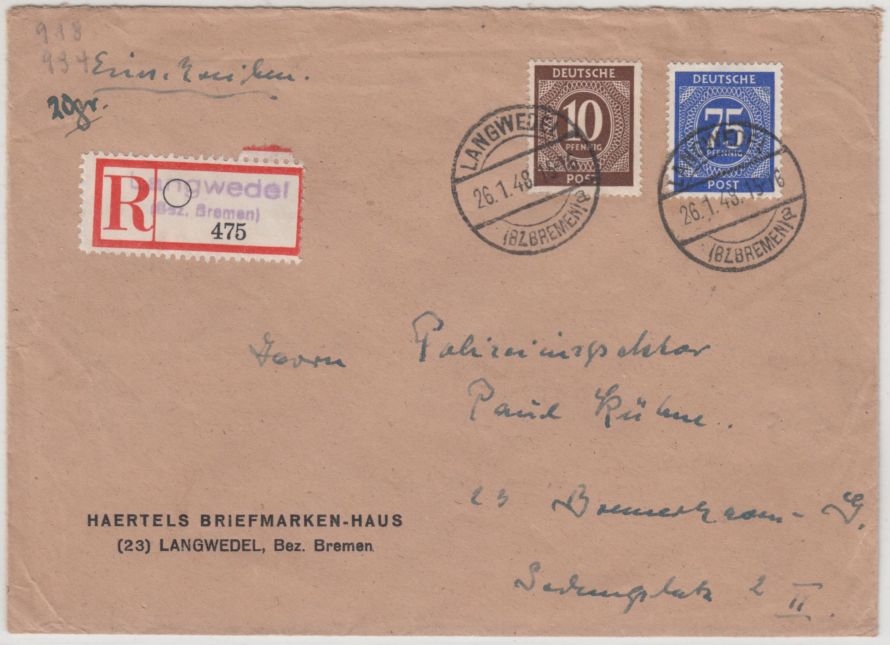 918
937
Einschreiben.
20gr.
DEUTSCHE
10
PFENNIG
POST
DEUTSCHE
75
PFENNIG
POST
LANGWEDEL
26.1.48.
(BZ.BREMEN)a
26.1.48.
(BZ.BREMEN)a
R
Langwedel
(Bez. Bremen)
475
Herrn Polizeiinspektor
Paul Kühne.
23 Bremerhaven-G.
HAERTELS BRIEFMARKEN-HAUS
(23) LANGWEDEL, Bez. Bremen
2 II.